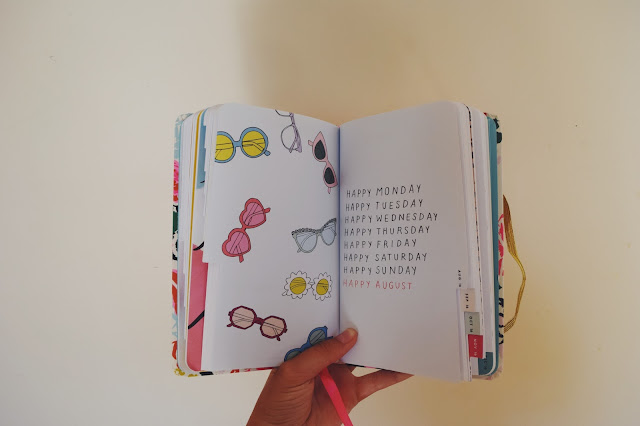 HAPPY MONDAY
HAPPY TUESDAY
HAPPY WEDNESDAY
HAPPY THURSDAY
HAPPY FRIDAY
HAPPY SATURDAY
HAPPY SUNDAY
HAPPY AUGUST